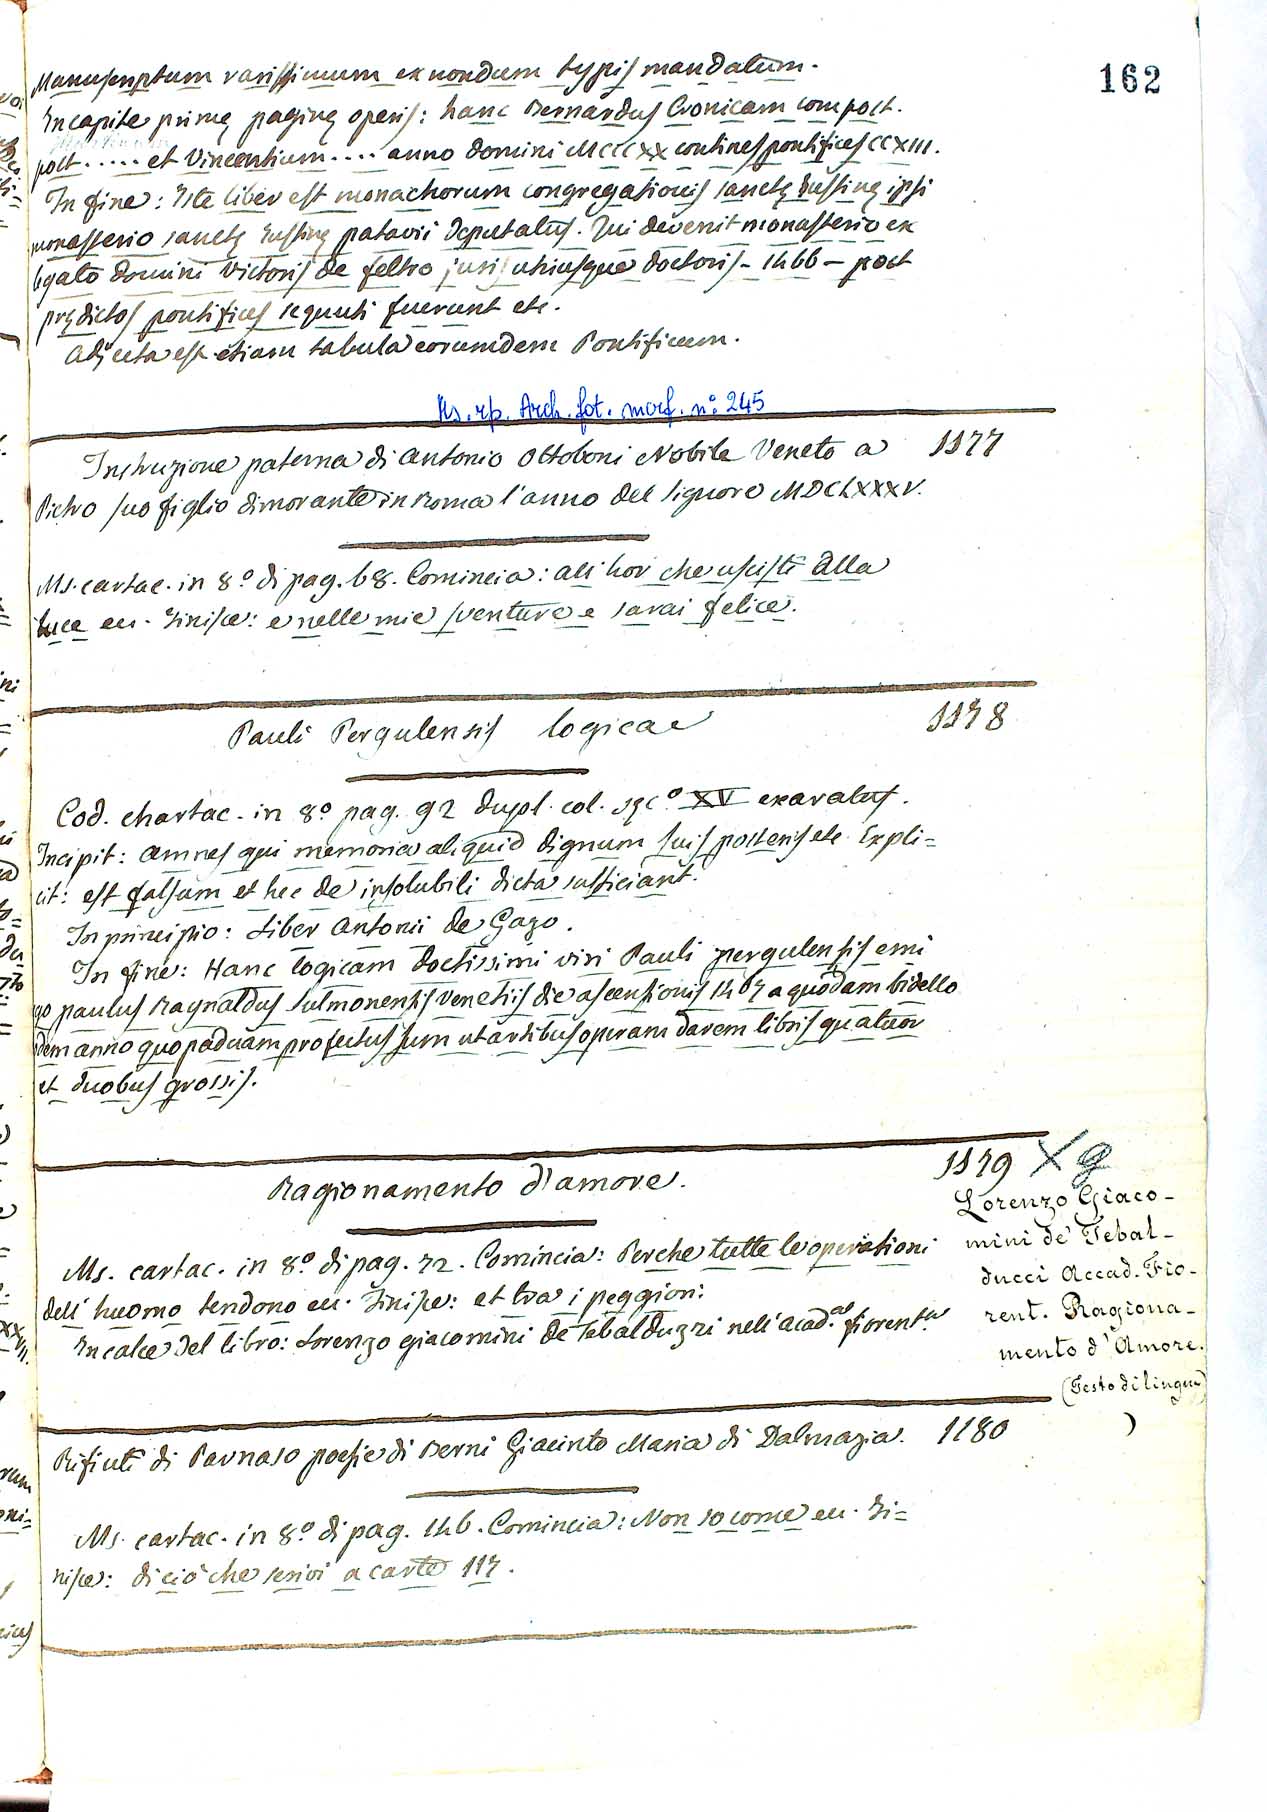 162
Manuscriptum rarissimum ex nondum typis mandatum.
In capite primę paginę operis: hanc Bernardus Cronicam compost.
post ..... et Vincentium .... anno domini MCCCXX continet pontifices CCXIII.
In fine: Iste liber est monachorum congregationis sanctę Iustinę ipsi
monasterio sanctę Iustinę patavii deputatus. Qui devenit monasterio ex
legato domini Victoris de feltro juris utriusque doctoris - 1466 - post
prędictos pontifices sequuti fuerunt etc.
Adjecta est etiam tabula eorumdem Pontificum.
Ms. rip. Arch. fot. morf. n.º 245
Instruzione paterna di Antonio Ottoboni Nobile Veneto a 1177
Pietro suo figlio dimorante in Roma l'anno del Signore MDCLXXXV.
Ms. cartac. in 8.º di pag. 68. Comincia: all'hor che uscisti alla
luce ec. Finisce: e nelle mie sventure e sarai felice.
Pauli Pergulensis logica 1178
Cod. chartac. in 8.º pag. 92 dupl. col. sęc.º XV exaratus.
Incipit: Omnes qui memoria aliquid dignum suis posteris etc. Expli=
cit: est falsum et hec de insolubili dicta sufficiant.
In principio: Liber Antonii de Gazo.
In fine: Hanc logicam doctissimi viri Pauli pergulensis emi
go paulus Raynaldus sulmonensis Venetiis die ascensionis 1467 a quodam bidello
dem anno quo paduam profectus sum ut artibus operam darem libris quatuor
et duobus grossis.
Ragionamento d'amore. 1179 X g
Ms. cartac. in 8.º di pag. 72. Comincia: Perche tutte le operationi
dell'huomo tendono ec. Finisce: et tra i peggiori.
In calce del libro: Lorenzo giacomini de Tebalduzzi nell'acad.ª fiorent.ª
Lorenzo Giaco-
mini de' Tebal-
ducci Accad. Fio-
rent. Ragiona-
mento d'Amore.
(Testo di lingua)
Rifiuti di Parnaso poesie di Berni Giacinto Maria di Dalmazia. 1180
Ms. cartac. in 8.º di pag. 146. Comincia: Non so come ec. Fi=
nisce: di ciò che scrivi a carte 117.